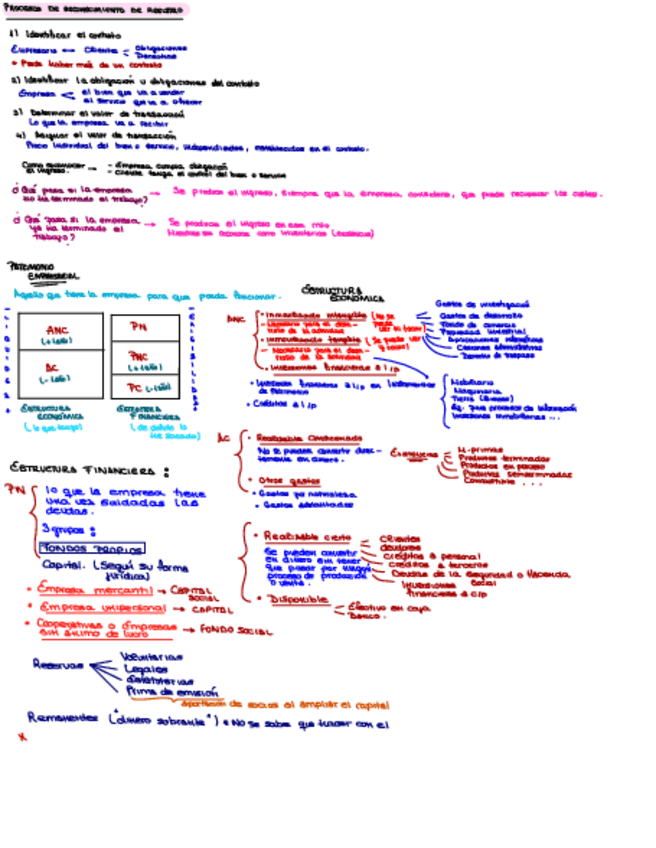 PROCESOS DE RECONOCIMIENTO DE
1) Identificar el contrato
Empresario
Cliente
Obligaciones
Derechos
* Puede haber más de un contrato
2) Identificar la obligación u obligaciones del contrato
Empresa
el bien que va a vender
el servicio que va a ofrecer
3) Determinar el valor de transacción
Lo que la empresa va a recibir
4) Asignar el valor de transacción
Precio individual del bien o servicio, independientes, establecidos en el contrato.
Como reconocer el ingreso.
- Empresa cumpla obligación
- Cliente tenga el control del bien o servicio
¿Qué pasa si la empresa no ha terminado el trabajo?
Se produce el ingreso, siempre que la empresa considere, que puede recuperar los costes.
¿Qué pasa si la empresa ya ha terminado el trabajo?
Se produce el ingreso en ese mto
PATRIMONIO
EMPRESARIAL
Aquello que tiene la empresa para que pueda funcionar.
ANC
(+1año)
AC
(-1año)
PN
PNC
(+1año)
PC (-1año)
ESTRUCTURA
ECONÓMICA
(lo que tengo)
ESTRUCTURA
FINANCIERA
(de dónde lo he sacado)
ESTRUCTURA
ECONÓMICA
ANC
• Inmovilizado intangible (No se puede ver ni tocar)
- Necesario para el desarrollo de la actividad
Gastos de investigación
Gastos de desarrollo
Fondo de comercio
Propiedad industrial
Aplicaciones informáticas
Concesiones administrativas
Derechos de traspaso
• Inmovilizado tangible (Se puede ver y tocar)
- Necesario para el desarrollo de la actividad
Mobiliario
Maquinaria
Eq. para procesos de información
Inversiones inmobiliarias ...
• Inversiones financieras a l/p
• Inversiones financieras a l/p en instrumentos de patrimonio
• Créditos a l/p
AC
• Realizable condicionado
No se pueden convertir directamente en dinero.
Existencias
M. primas
Productos terminados
Productos en proceso
Productos semiterminados
Combustible ...
• Otros gastos
• Gastos por naturaleza
• Realizable cierto
Se pueden convertir en dinero sin tener que pasar por ningún proceso de producción o venta.
Clientes
deudores
créditos a personal
créditos a terceros
Deudas de la seguridad o Hacienda
Social
Inversiones financieras a c/p
• Disponible
Efectivo en caja
Banco.
ESTRUCTURA FINANCIERA:
PN
lo que la empresa tiene
una vez saldadas las
deudas.
3 grupos:
FONDOS PROPIOS
Capital. (Según su forma jurídica)
• Empresa mercantil → CAPITAL SOCIAL
• Empresa unipersonal → CAPITAL
• Cooperativas o Empresas sin ánimo de lucro → FONDO SOCIAL
Reservas
Voluntarias
Legales
Estatutarias
Prima de emisión
aportación de socios al ampliar el capital
Remanentes ("dinero sobrante") * No se sabe que hacer con el
x